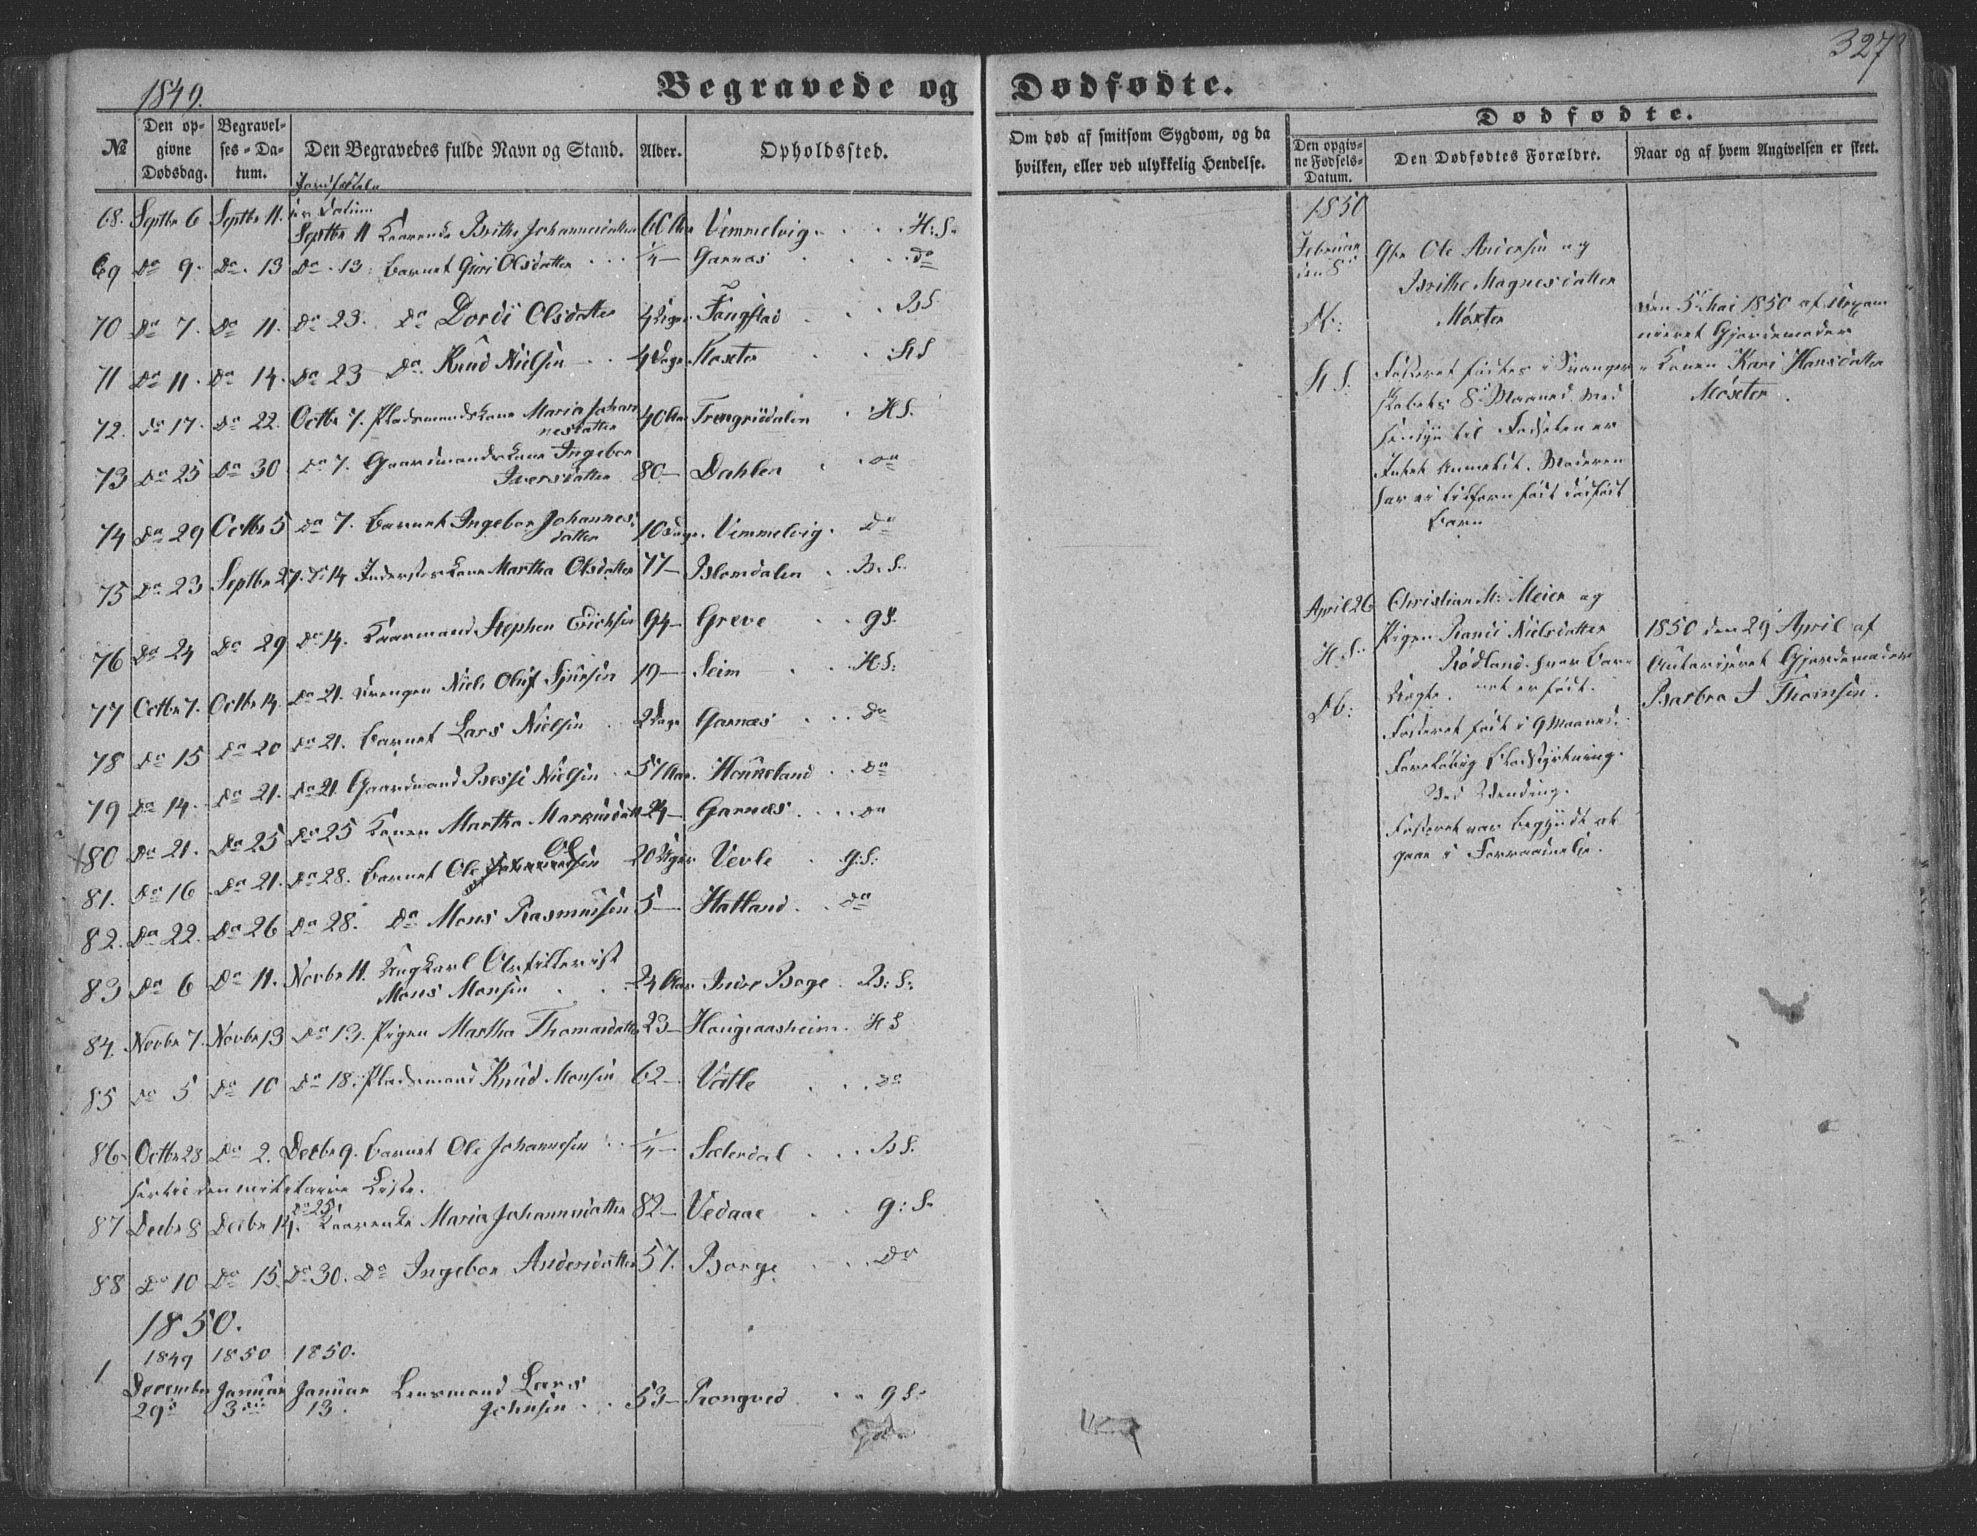 327
1849.
Begravede og Dødfødte.
Dødfødte.
No
Den op-
givne
Dødsdag.
Begravel-
ses-Da-
tum.
Den Begravedes fulde Navn og Stand.
Alder.
Opholdssted.
Om død af smitsom Sygdom, og da
hvilken, eller ved ulykkelig Hendelse.
Den opgiv-
ne Fødsels-
Datum.
Den Dødfødtes Forældre.
Naar og af hvem Angivelsen er skeet.
68. Septbr 6 Septbr 11. Septbr 11 Kaarenke Brithe Johannesdatter 60 Aar Vemmelvig. H: S.
69 Do 9. Do. 13 Do. 13. Barnet Guri Olsdatter ¼ — Garnæs Do
70 Do 7. Do 11. Do 23. Do Dordi Olsdatter 4 Uger Fangstad BS
71 Do 11. Do 14. Do 23 Do. Knud Nielsen 4 Dage HS
72. Do 17. Do 22. Octbr 7. Pladsmandskone Maria Johan
nesdatter 40 Aar Trengriidalen HS.
73 Do 25 Do 30 Do 7. Gaardmandskone Ingebor
Iversdatter 80— Dahlen Do
74 Do 29 Octbr 5 Do 7. Barnet Ingebor Johannes
datter 10 Dage. Vemmelvig. Do
75 Do 23 Septbr 27. Do 14 Inderstes Kone Martha Olsdatter 77— Blomdalen B. S.
76 Do 24 Do 29 Do 14. Kaarmand Stephen Erichsen 94— Greve GS.
77 Octbr 7. Octbr 14. Do 21. Drengen Niels Oluf Sjursen 19— Seim H. S.
78 Do 15 Do 20 Do 21. Barnet Lars Nielsen 2 Dage Garnæs Do
79 Do 14. Do 21. Do 21 Gaardmand Bessi Nielsen 57 Aar. Henneland Do
80 Do 21. Do 25 Do 25 Konen Martha Markusdatt 24— Garnæs Do
81. Do 16 Do 21. Do 28. Barnet Ole 20 Uger Vevle G: S:
82. Do 22. Do 26 Do 28. Do Mons Rasmussen 5— Hatland. Do
83 Do 6 Do 11. Novbr 11. Ungkarl
Mons Monsen 24 Aar Indre Boge B: S.
84. Novbr 7. Novbr 13 Do 13. Pigen Martha Thomasdatter 23— Haugsaasheim. HS
85 Do 5 Do 10 Do 18. Pladsmand Knud Monsen 62— Vatle Do
86 Octbr 28 Do 2. Decbr 9. Barnet Ole Johannesen ¼— Sæterdal BS.
87 Decbr 8 Decbr 14. Do 25. Kaarenke Maria Johannesdatter 82— Vedaae G: S.
88 Do 10 Do 15. Do 30. Do Ingebor Andersdatter 57. Borge Do
1850.
1849 1850 1850.
1 December
29de Januar
3die Januar
13. Lensmand Lars
Johnsen 53— Rongved G S.
1850
Februar
den 8de
Gbr Ole Andersen og
Brithe Magnesdatter
Møxter
Fosteret fødtes i Svanger
skabets 8de Maaned. Med
Hensyn til Fødselen er
Intet Anmeldt. Moderen
har ei tilforn født dødfødt
Barn
H S.
Den 5te Mai 1850 af Uexam
ineret Gjordemoder
Konen Kari Hansdatter
Møxter
April 26
H. S.
Christian M: Meier og
Pigen Randi Nielsdatter
Rødland. hvor Bar-
net er født.
Fosteret født i 9 Maaned.
Foreløbig Blodstyrtning.
Ved Vending.
Fosteret var begyndt at
gaae i Forraadnelse.
1850 den 29 April af
Autoriseret Gjordemoder
Barbra J Thomsen.